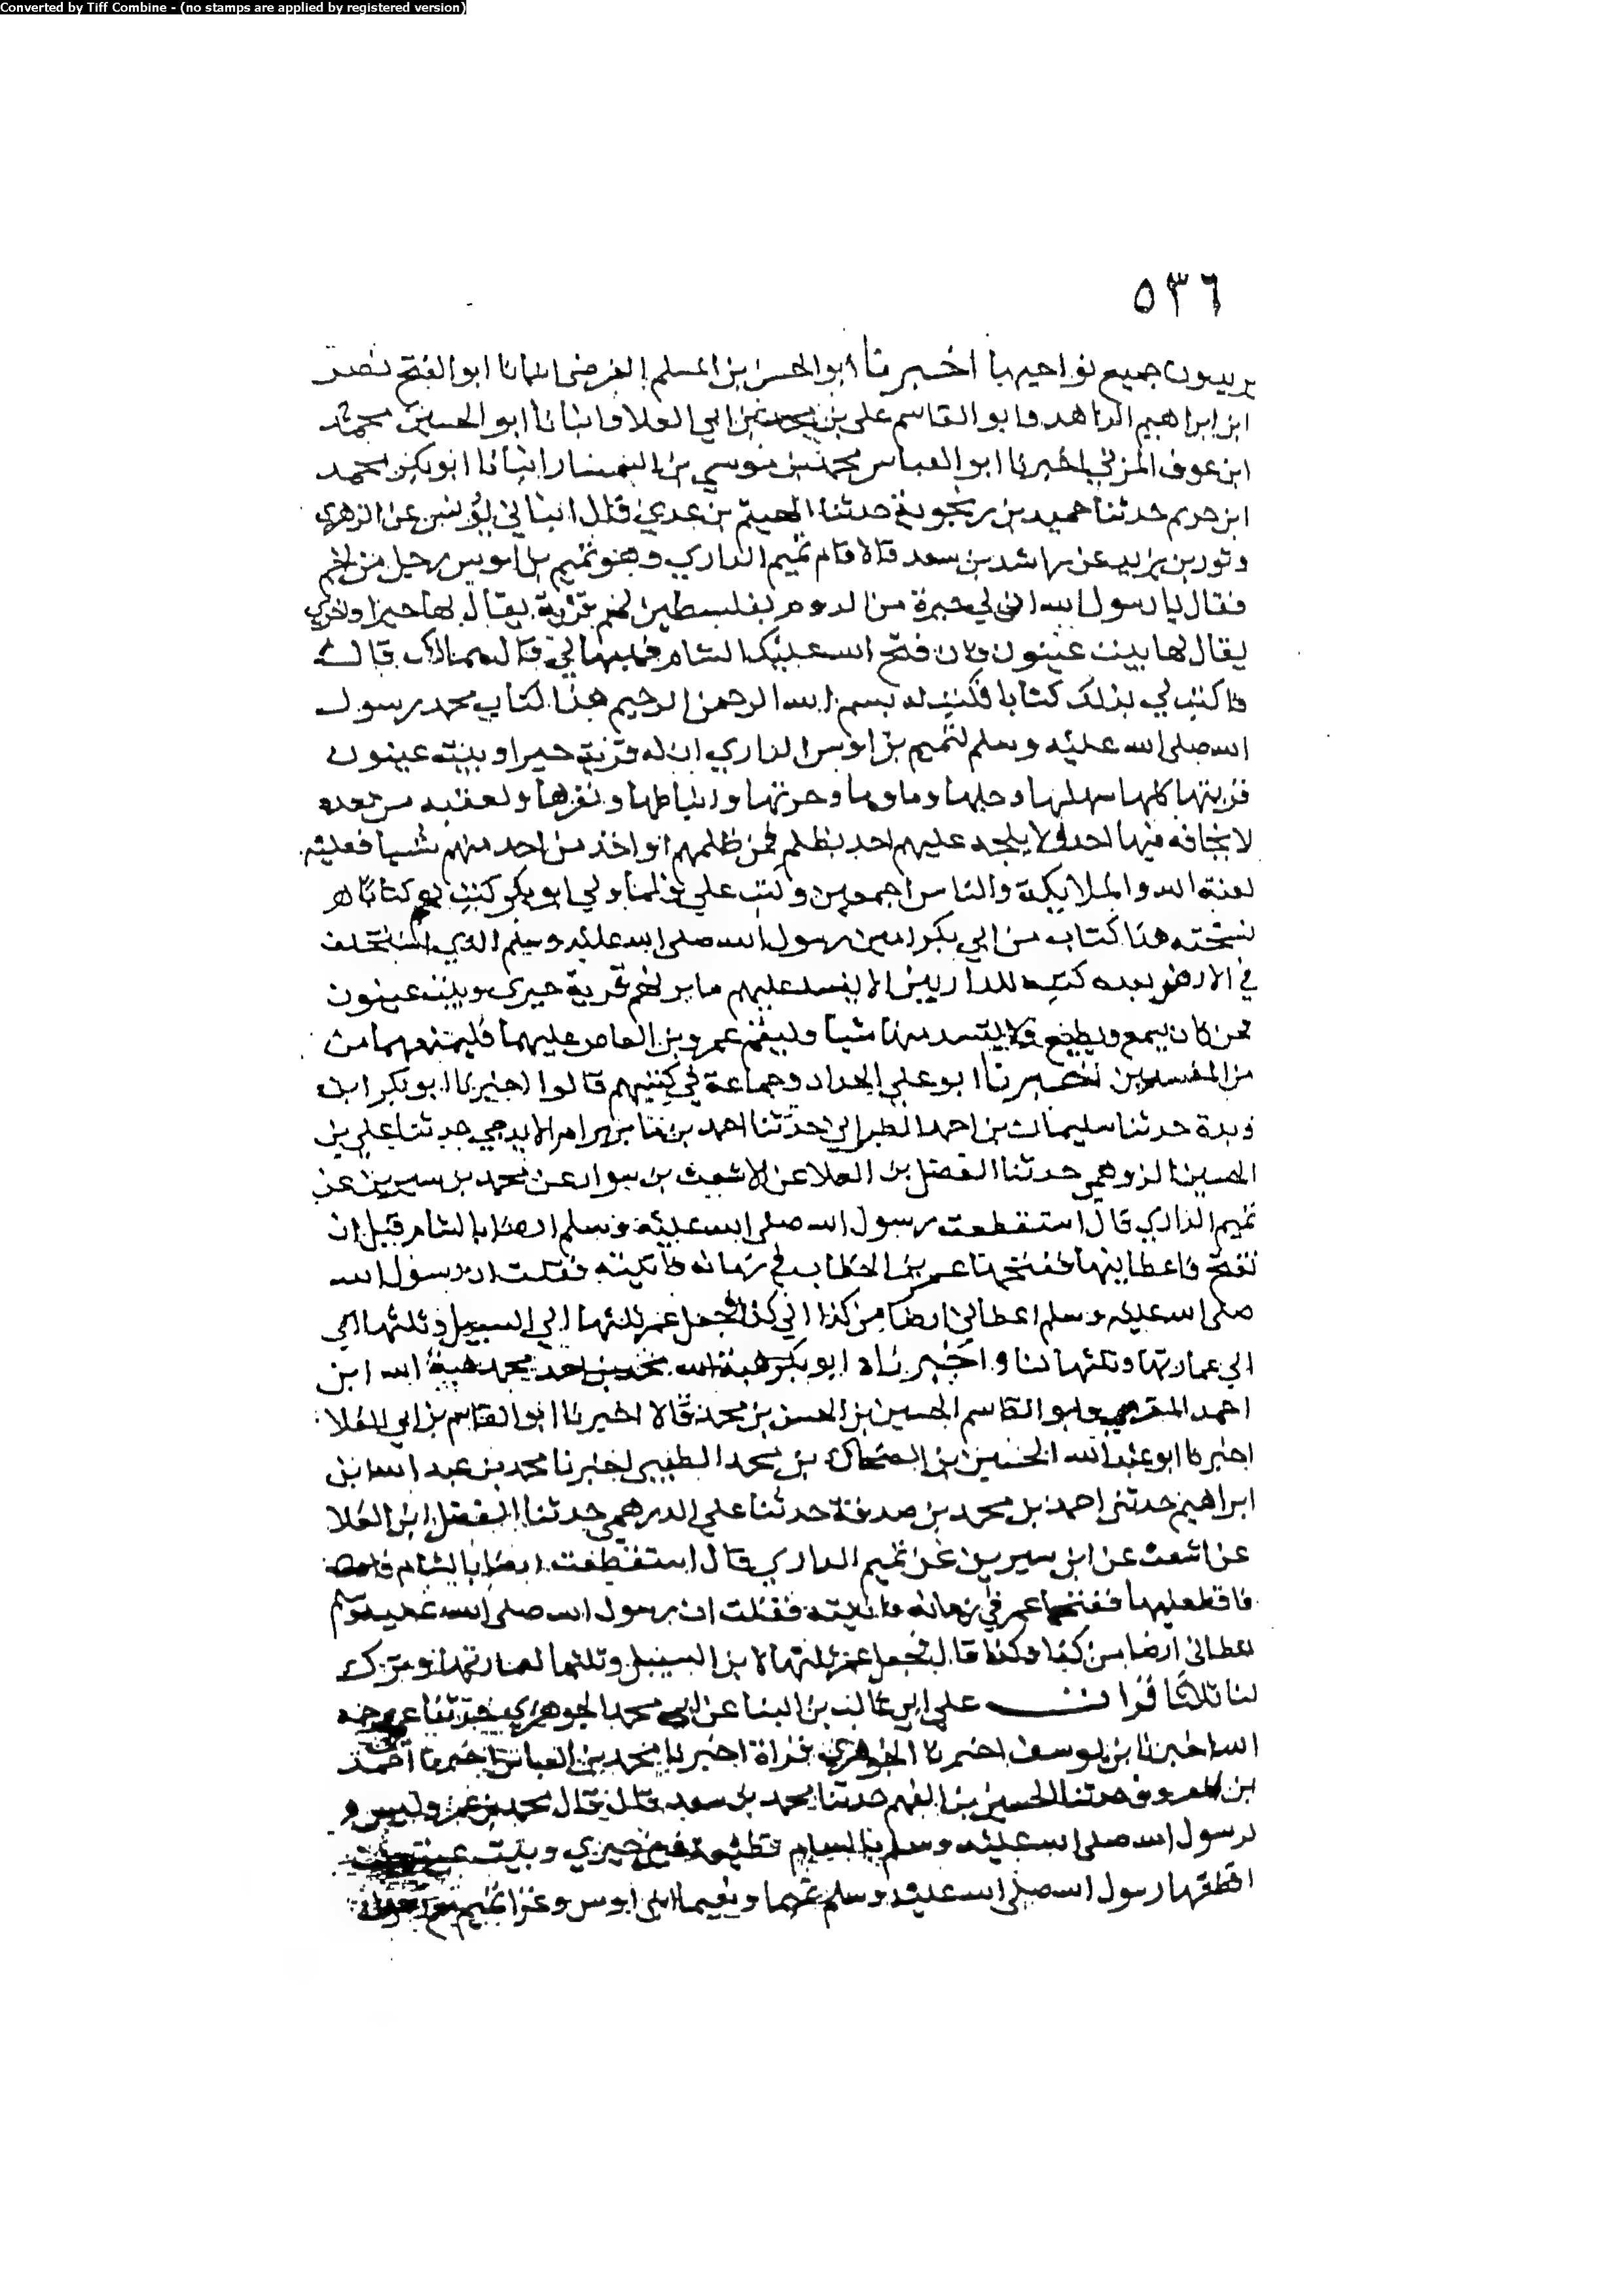 Converted by Tiff Combine - (no stamps are applied by registered version)
٥٣٦
يريدون جميع نواحيها اخبرنا ابو الحسن بن المسلم الفرضى انبانا ابو الفتح نصر
ابن ابراهيم الزاهد وابو القاسم على بن محمد بن ابي العلا وانبانا ابو الحسين محمد
ابن عوف المزني اخبرنا ابو العباس محمد بن موسي بن السمسار انبانا ابو بكر محمد
ابن خريم حدثنا حميد بن زنجويه حدثنا الهيثم بن عدي قال انباني يونس عن الزهري
وثور بن يزيد عن راشد بن سعد قالا قام تميم الداري وهو تميم بن اوس رجل من لخم
فقال يا رسول الله ان لي جيرة من الروم بفلسطين لهم قرية يقال لها حيرا واخري
يقال لها بيت عينون فان فتح الله عليك الشام فهبها لي قال هما لك قال
فاكتب لي بذلك كتابا فكتب له بسم الله الرحمن الرحيم هذا كتاب محمد رسول
الله صلى الله عليه وسلم لتميم بن اوس الداري ان له قرية حيرا وبيت عينون
قريتها كلها سهلها وجبلها وماوها وحرثها وانباطها وبقرها ولعقبه من بعده
لا يحاقه فيها احد ولا يلجه عليهم احد بظلم فمن ظلمهم او اخذ من احد منهم شيا فعليه
لعنة الله والملايكة والناس اجمعين وكتب علي فلما ولي ابو بكر كتب لهم كتابا
نسخته هذا كتاب من ابي بكر امين رسول الله صلى الله عليه وسلم الذي استخلف
في الارض بعده كتبه للداريين الا يفسد عليهم قرية حيرى وبيت عينون
فمن كان يسمع ويطيع فلا يفسد منها شيا وليقم عمرو بن العاص عليهما فليمنعهما من
من المفسدين اخبرنا ابو علي الحداد وجماعة في كتبهم قالوا اخبرنا ابو بكر ابن
ريدة حدثنا سليمان بن احمد الطبراني حدثنا احمد بن بهرام الايذجي حدثنا علي بن
الحسين الدرهمي حدثنا الفضل بن العلا عن الاشعث بن سوار عن محمد بن سيرين عن
تميم الداري قال استقطعت رسول الله صلى الله عليه وسلم ارضا بالشام قبل ان
تفتح فاعطانيها ففتحها عمر بن الخطاب في زمانه فاتيته فقلت ان رسول الله
صلى الله عليه وسلم اعطاني ارضا من كذا الي كذا فجعل عمر ثلثها الي السبيل وثلثها الي
الي عمارتها وثلثها لنا واخبرناه ابو بكر محمد هبة الله ابن
احمد المقري وابو القاسم الحسين بن الحسن بن محمد قالا اخبرنا ابو القاسم بن ابي العلا
اخبرنا ابو عبد الله الحسين بن الضحاك بن محمد الطيبي اخبرنا محمد بن عبد الله ابن
ابراهيم حدثنى احمد بن محمد بن صدقة حدثنا علي الدرهمي حدثنا الفضل ابن العلا
عن اشعث عن ابن سيرين عن تميم الداري قال استقطعت ارضا بالشام
فاقطعنيها ففتحها عمر في زمانه فاتيته فقلت ان رسول الله صلى الله عليه وسلم
اعطانى ارضا من كذا وكذا قال فجعل عمر ثلثها لابن السبيل وثلثها لعمارتها وترك
لنا ثلاثا قرات على ابي غالب بن البنا عن ابي محمد الجوهري حدثنا عمي رحمه
الله اخبرنا ابن يوسف اخبرنا الجوهري قراة اخبرنا محمد بن العباس اخبرنا احمد
بن معروف حدثنا الحسين بن الفهم حدثنا محمد بن سعد قال قال محمد بن عمر وليس
لرسول الله صلى الله عليه وسلم بالشام قطيعة غير حيري وبيت عينون
اقطعها رسول الله صلى الله عليه وسلم تميما ونعيما ابني اوس وغزا تميم مع رسول